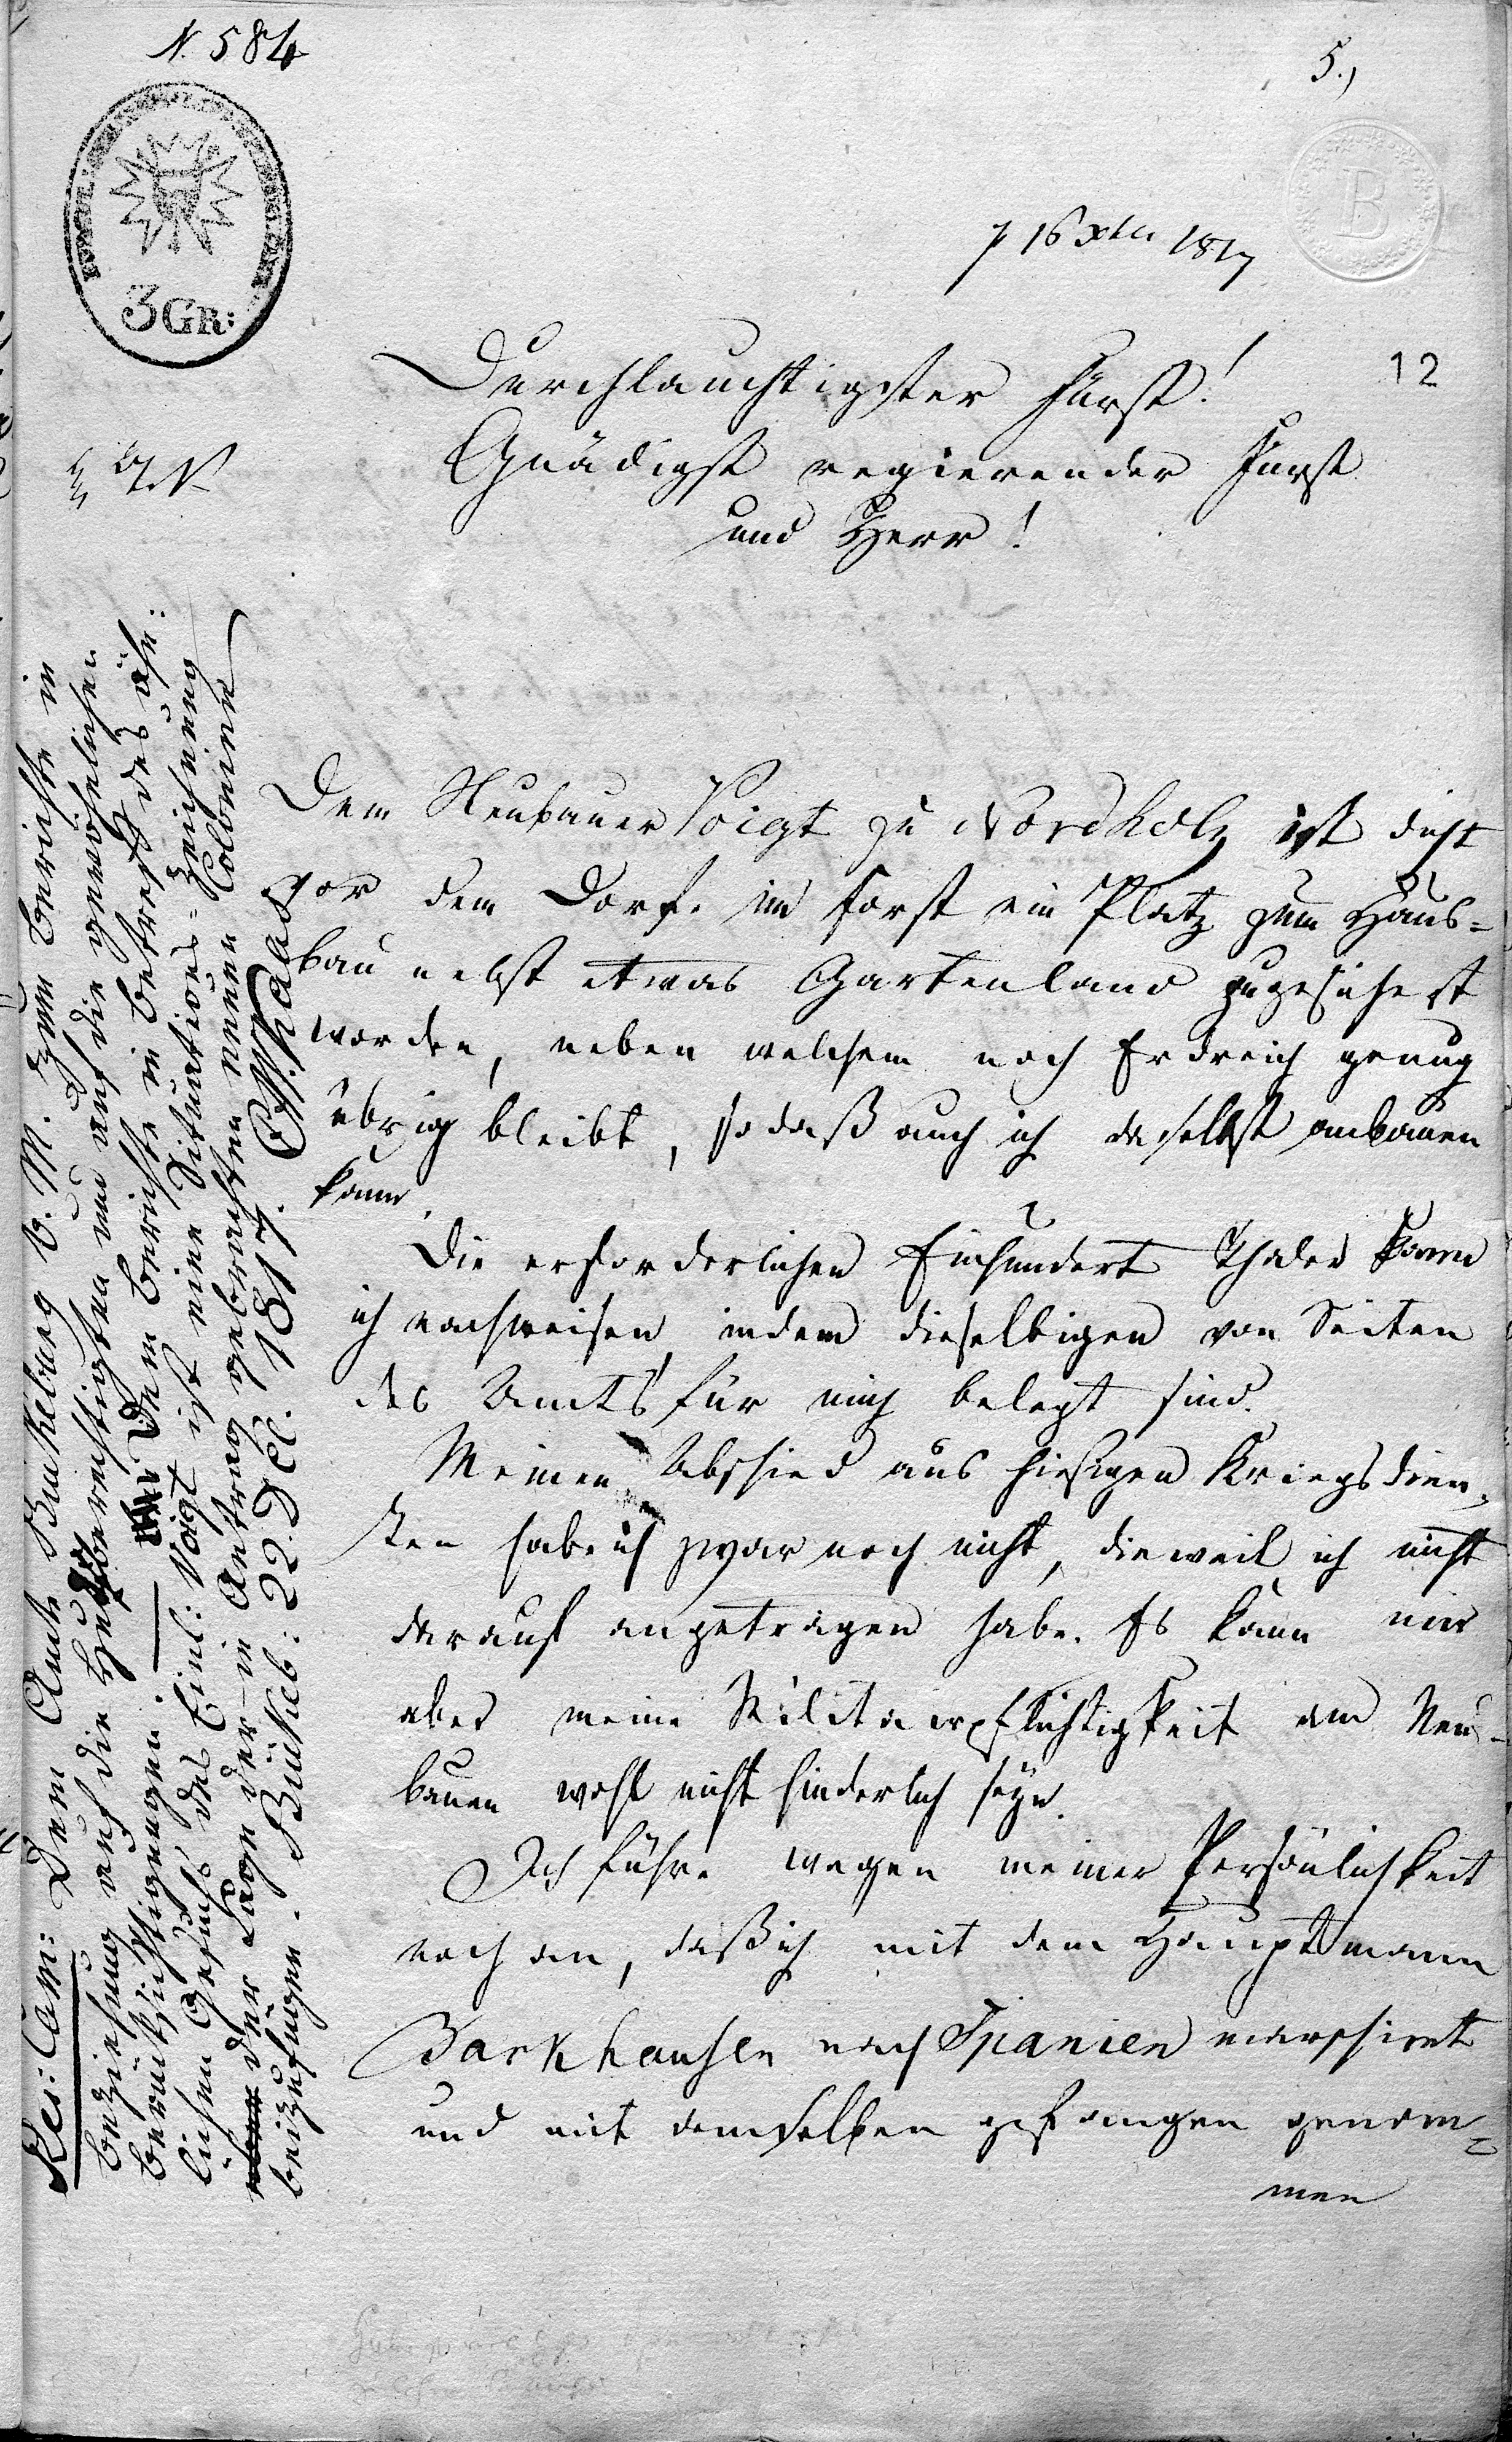 N. 584
5.,
3 GR:
B
16 Xbr 1817
12
Durchlauchtigster Fürst!
Gnädigst regierender Fürst
und Herr!
Dem Neubauer Voigt zu Nordholz ist dicht
vor dem Dorfe im Forst ein Platz zum Haus=
bau nebst etwas Gartenland zugesichert
worden, neben welchem noch Erdreich genug
übrig bleibt, so daß auch ich daselbst anbauen
kann.
Die erforderlichen Einhundert Thaler kann
ich nachweisen, indem dieselbigen von Seiten
des Amts für mich belegt sind.
Meinen Abschied aus hiesigen Kriegsdien=
sten habe ich zwar noch nicht, dieweil ich nicht
darauf angetragen habe. Es kann mir
aber meine Militairpflichtigkeit am Neu=
bauen wohl nicht hinderlich seyn.
Ich führe wegen meiner Persönlichkeit
noch an, daß ich mit dem Hauptmann
Barkhausen nach Spanien marschirt
und mit demselben gefangen genom=
men
Res: Cam: Dem Amte Bückeburg V. M. zum Berichte in
Beziehung auf die Hudeberechtigten und auf die gewöhnlichen
Berücksichtigungen. — Dem Berichte in Betreff des ähn:
lichen Gesuchs des Einl: Voigt ist eine Situations-Zeichnung
der Lage der in Antrag gebrachten neuen Colonien
beizufügen. Bückeb: 22. Dec. 1817.